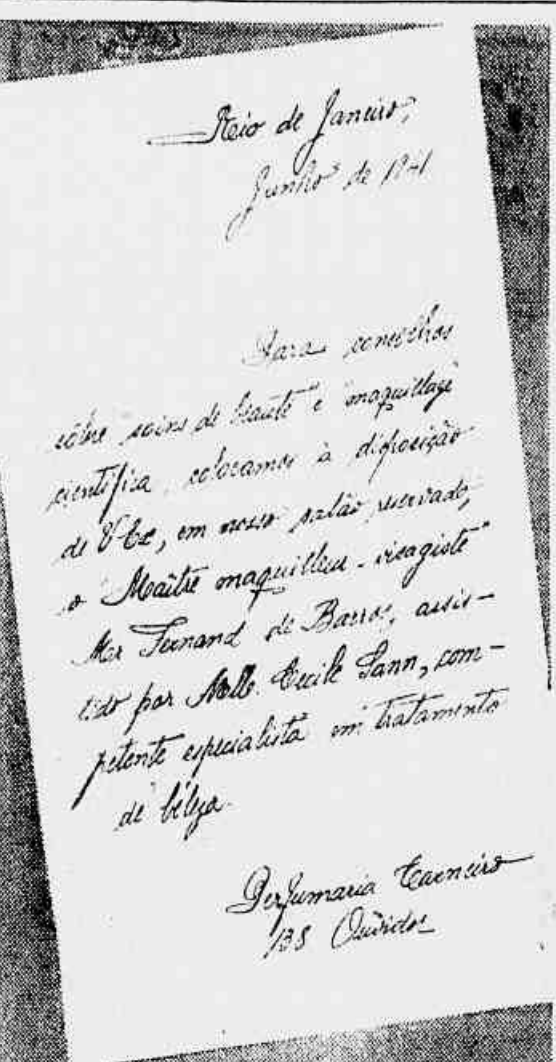 Rio de Janeiro,
Junho de 1941
Para conselhos
sôbre soins de beauté e "maquillage"
cientifica, colocamos à disposição
de V. Ex, em nosso salão reservado,
o "Maître maquilleur-visagiste"
Mer Fernand de Barros, assis-
tido por Melle. Cecile Sann, com-
petente especialista em tratamento
de beleza.
Perfumaria Carneiro
138 Ouvidor